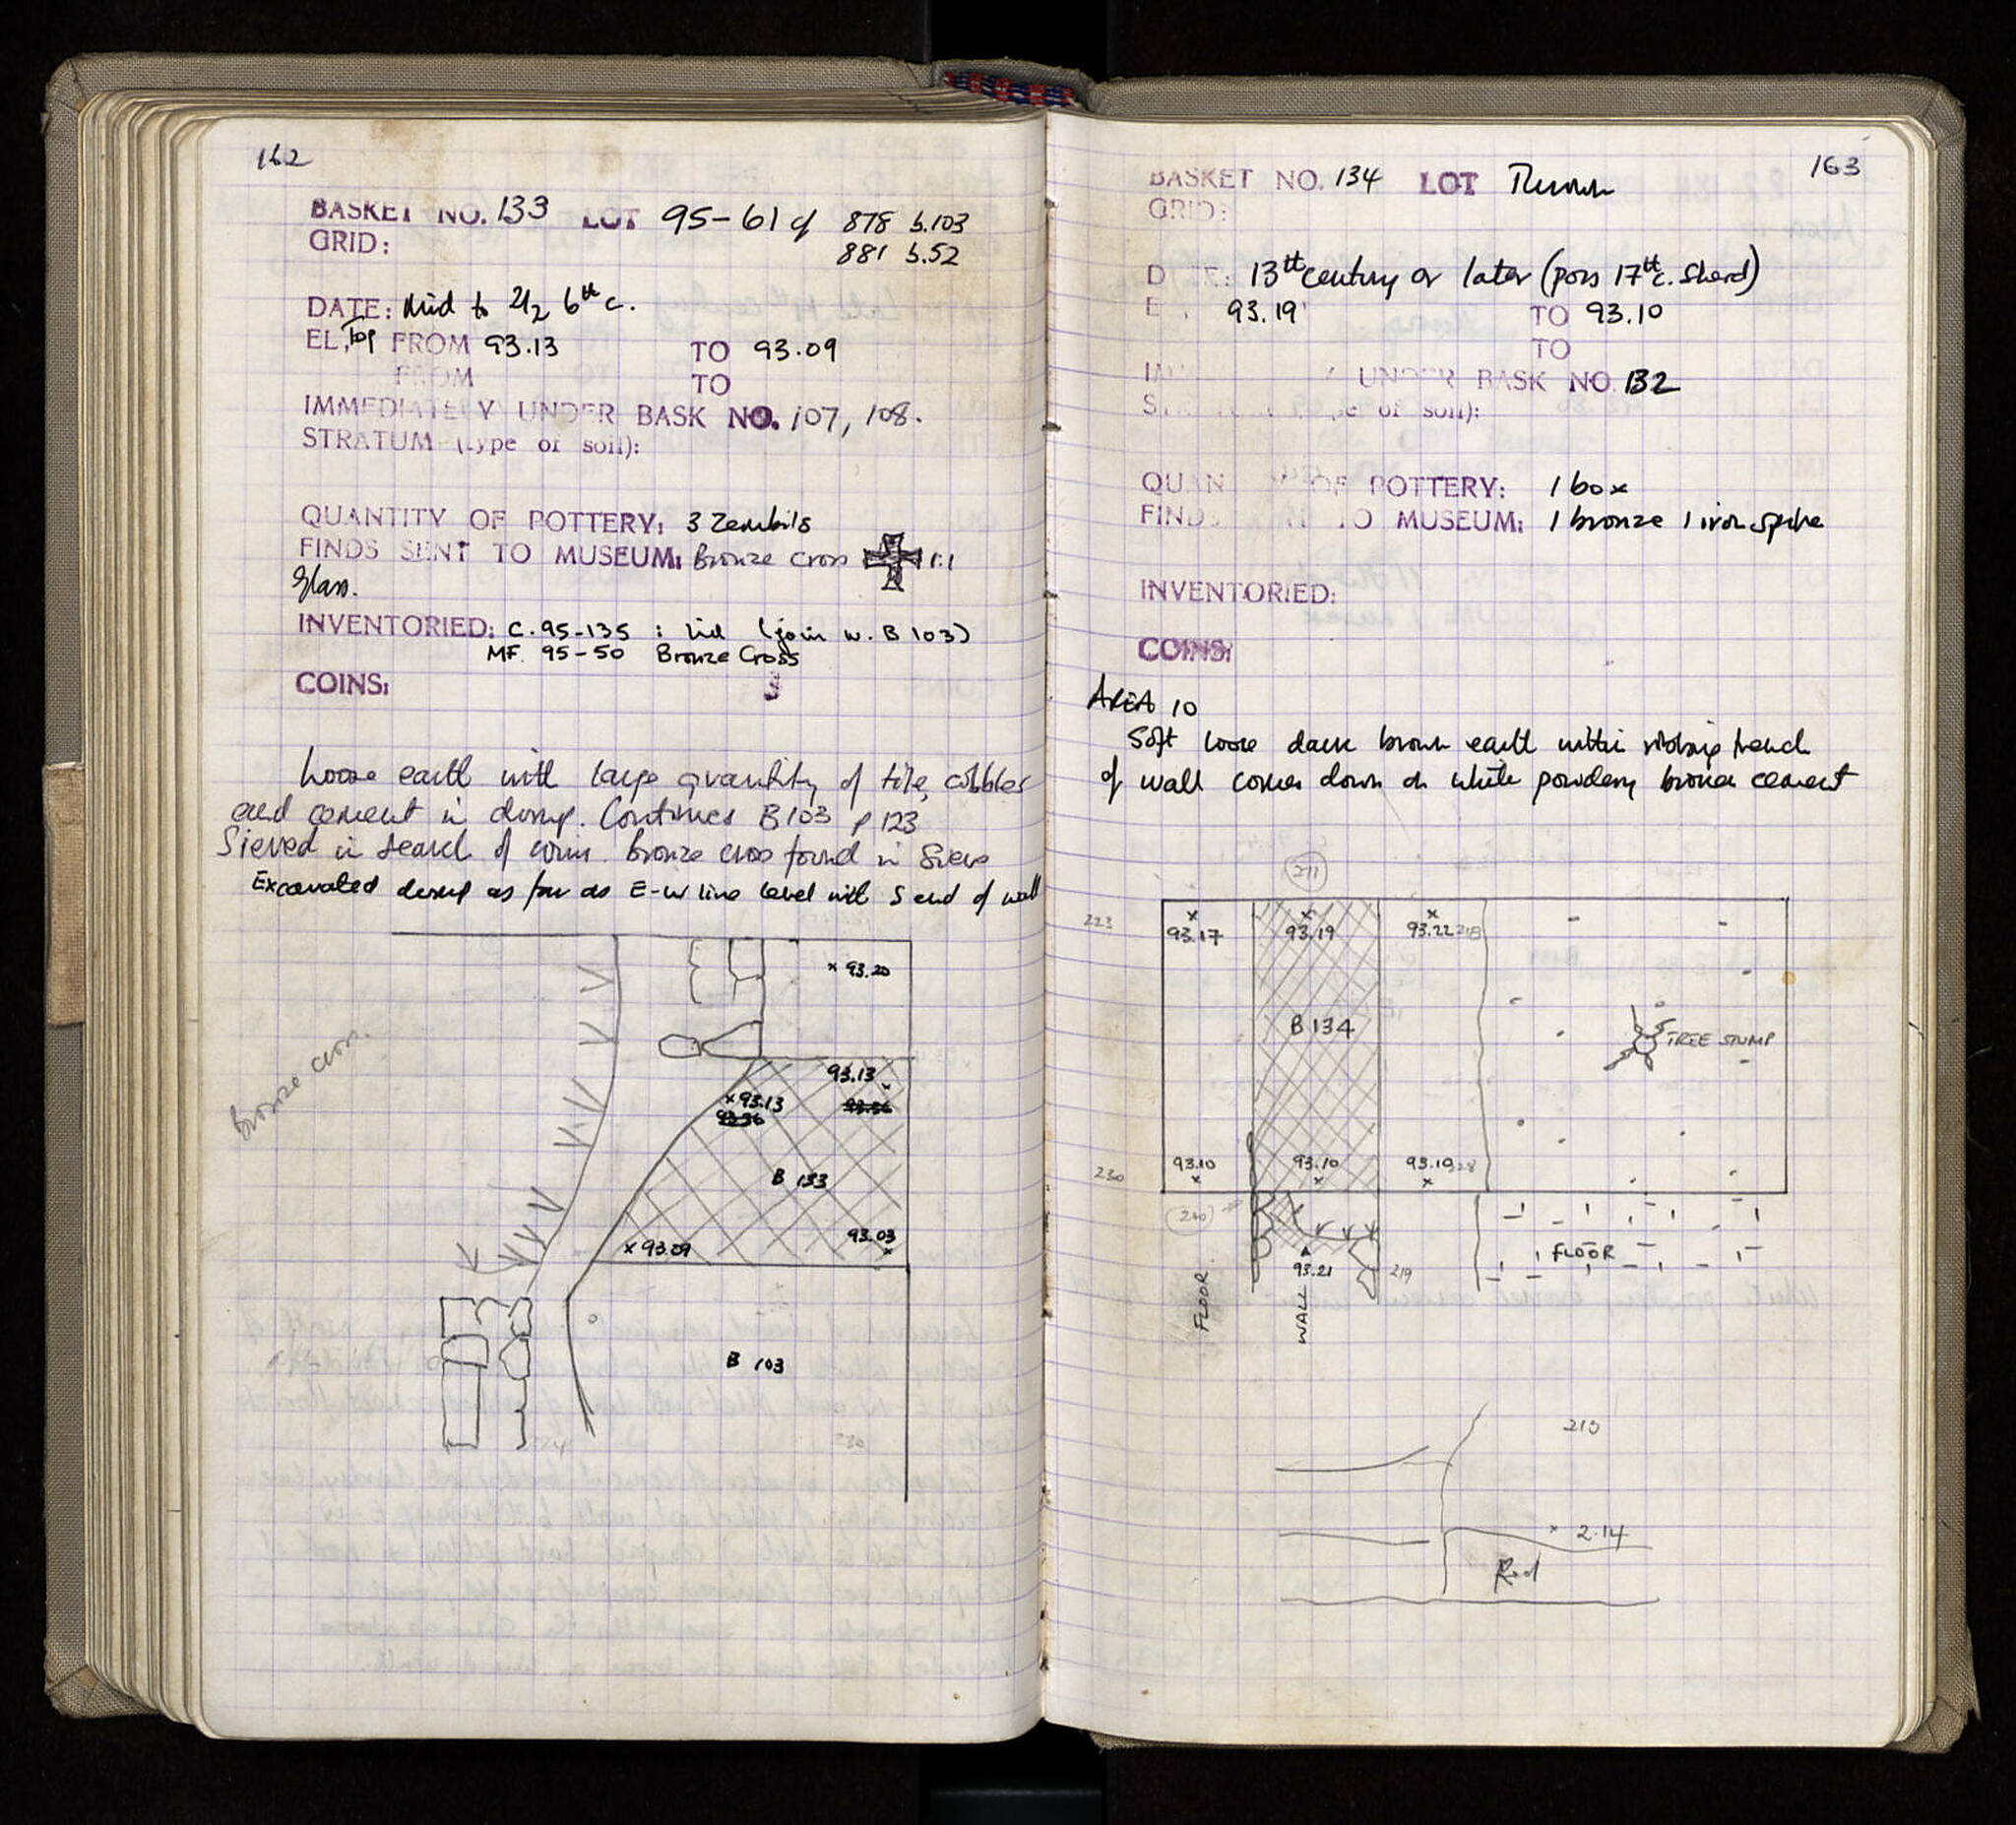 162
BASKET NO. 133 LOT 95-61 cf 878 b.103
GRID: 881 b.52
DATE: Mid to 2/2 6th c.
EL, Top FROM 93.13 TO 93.09
FROM TO
IMMEDIATELY UNDER BASK NO. 107, 108.
STRATUM (type of soil):
QUANTITY OF POTTERY: 3 Zembils
FINDS SENT TO MUSEUM: Bronze Cross 1:1
Glass.
INVENTORIED: C. 95-135 : Lid (join w. B 103)
MF. 95-50 Bronze Cross
COINS:
Loose earth with large quantity of tile, cobbles
and cement in dump. Continues B103 p 123
Sieved in search of coins. Bronze cross found in Sieve
Excavated dump as far as E-W line level with S end of wall
x 93.20
93.13
x 93.13
B 133
x 93.09
93.03
B 103
230
Bronze Cross.
163
BASKET NO. 134 LOT Thrown
GRID:
DATE: 13th century or later (poss 17th c. Sherd)
E 93.19 TO 93.10
TO
UNDER BASK NO. 132
of soil):
QUAN OF POTTERY: 1 box
FINDS TO MUSEUM: 1 bronze 1 iron spike
INVENTORIED:
COINS:
AREA 10
Soft loose dark brown earth within robbing trench
of wall comes down on white powdery broken cement
211
223
x 93.17
x 93.19
x 93.22 218
B 134
TREE STUMP
230
93.10 x
93.10 x
93.19 x
240
FLOOR
WALL
93.21
219
FLOOR
213
x 2.14
Red